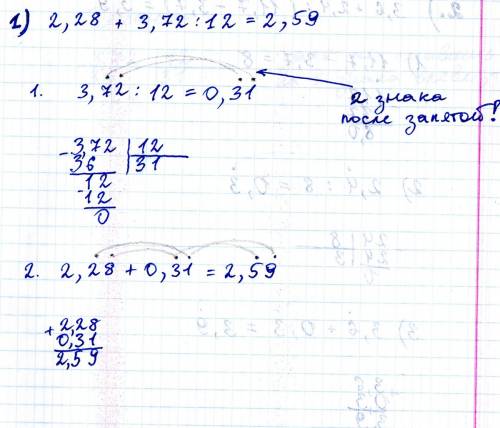 1) 2,28 + 3,72 : 12 = 2,59
1. 3,72 : 12 = 0,31
2 знака
после запятой!
- 3,72 | 12
36 | 31
12
- 12
0
2. 2,28 + 0,31 = 2,59
+ 2,28
0,31
2,59